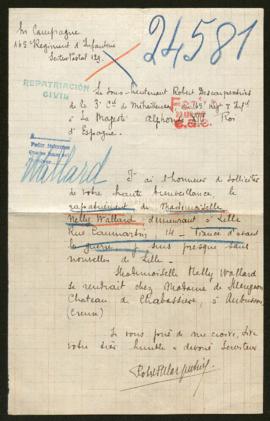 En Campagne
24581
145e Régiment d'Infanterie
Secteur Postal 129.
REPATRIACIÓN
CIVIL
Le Sous-lieutenant Robert Descarpentries
de la 3e Cie de Mitrailleuses 145e Régt d'Infie
à Sa Majesté Alphonse XIII Roi
d'Espagne.
Wallard
J'ai l'honneur de solliciter
de votre haute bienveillance le
rapatriement de Mademoiselle
Nelly Wallard demeurant à Lille
Rue Caumartin, 14 - France d'avant
la guerre, suis presque sans
nouvelles de Lille -
Mademoiselle Nelly Wallard
se rendrait chez Madame de
Chateau de Chabassière, à Aubusson
(Creuse)
Je vous prie de me croire, Sire
votre très humble & dévoué Serviteur